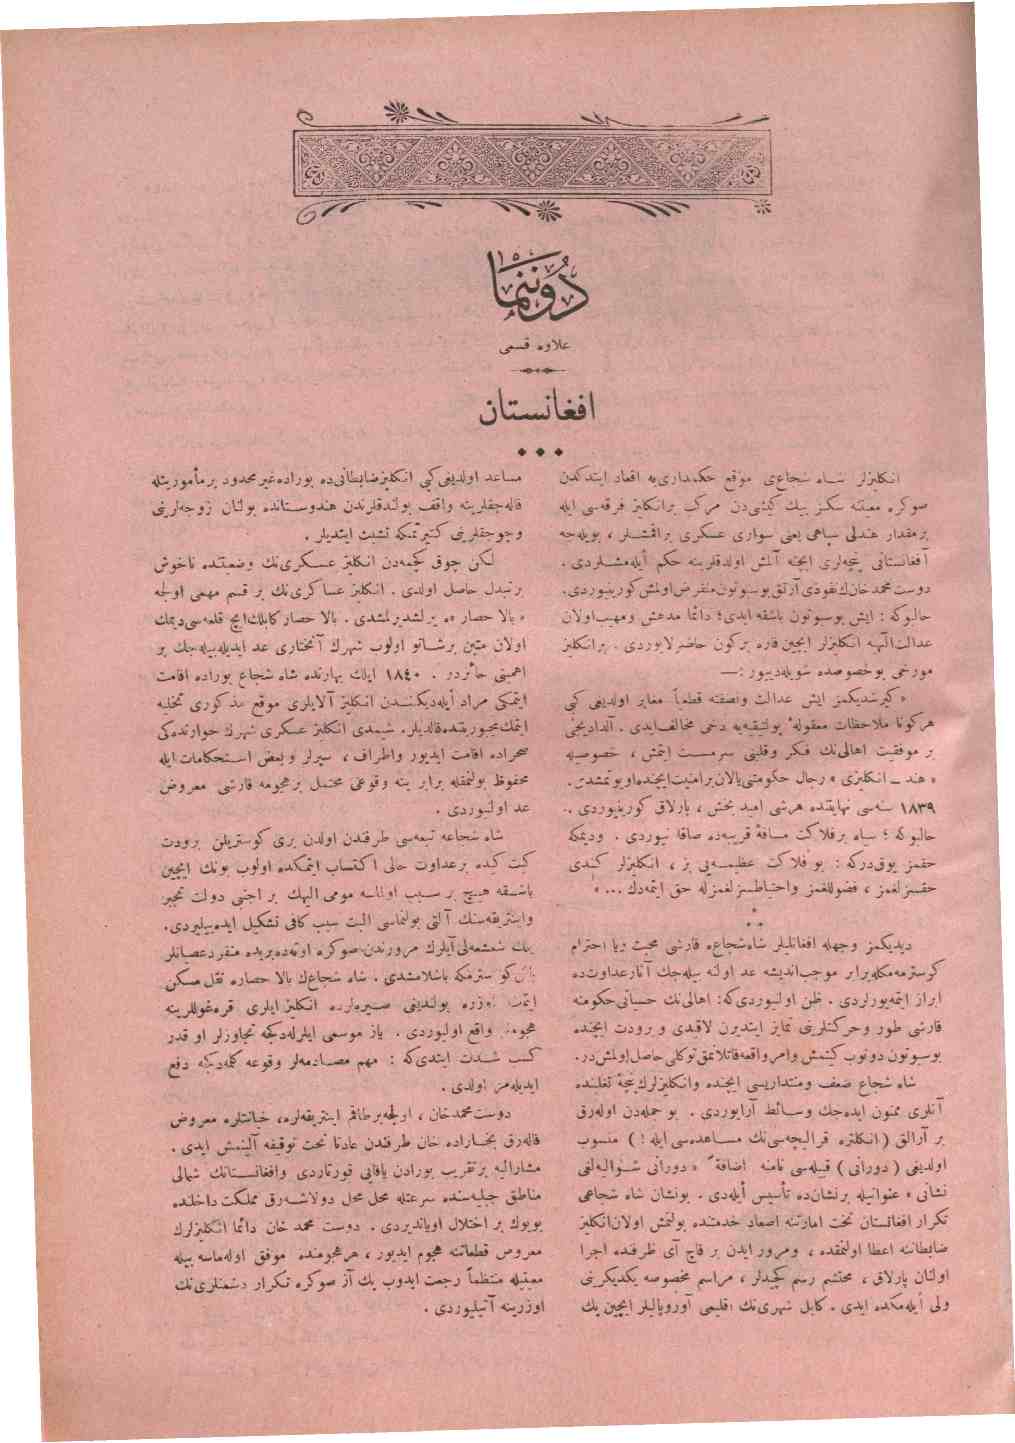 دوننما
علاوه قسمی
افغانستان
انكليزلر شاه شجاعی موقع حكمداری‌یه اقعاد ايتدكدن
صوكره معيتنه سكز بيك كيشی‌دن مركب برانكليز فرقه‌سی ايله
برمقدار هندلی سپاهی يعنی سواری عسكری براقمشلر ، بويله‌جه
آفغانستانی پنچه‌لری ايچنه آلمش اولدقلرينه حكم أيله‌مشلردی .
دوست محمد خانك نفوذی آرتق بوسبوتون منقرض اولمش كورينيوردی.
حالبوكه : ايش بوسبوتون باشقه ايدی؛ دائما مدهش ومهيب اولان
عدالت الهيه انكليزلر ايچين قاره بركون حاضرلايوردی . برانكليز
مورخی بوخصوصده شويله‌دييور :—
« كيرشديكمز ايش عدالت ونصفته قطعياً مغاير اولديغی كبی
هركونا ملاحظات معقولهٔ پولتيقيه‌يه دخی مخالف‌ايدی . آلداديجی
بر موفقيت اهالی‌نك فكر وقلبنی سرمست ايتمش ، خصوصيله
« هند ـ انكليزی » رجال حكومتنی يالان برامنيت ايچنده اويوتمشدی.
١٨٣٩ سنه‌سی نهايتنده هرشی اميد بخش ، پارلاق كورينيوردی .
حالبوكه ؛ سياه برفلاكت مسافهٔ قريبه‌ده صاقلانيوردی . وديمكه
حقمز يوق‌دركه : بو فلاكت عظيمه‌يی بز ، انكليزلر كندی
حقسزلغمز ، فضوللغمز واحتياطسزلغمزله حق ايتمه‌دك ... »
ديديكمز وجهله افغانليلر شاه‌شجاعه قارشی محبت ويا احترام
كوسترمه‌مكله‌برابر موجب‌انديشه عد اولنه بيله‌جك آثارعداوت‌ده
ابراز ايتمه‌يورلردی . ظن اولنيوردی‌كه: اهالی‌نك حسياتی حكومته
قارشی طور وحركتلرينی تمايز ايتديرن لاقيدی و رودت ايچنده
بوسبوتون دونوب كيتمش وامر واقعه قاتلانمق توكلی حاصل اولمش‌در.
شاه شجاع ضعف ومنتداريسی ايچنده وانكليزلرك پنچهٔ تغلبنده
آنلری ممنون ايده‌جك وسائط آرايوردی . بو جمله‌دن اوله‌رق
بر آرالق ( انكلتره قراليچه‌سی‌نك مساعده‌سی ايله ! ) منسوب
اولديغی ( دورانی ) قبيله‌سی نامنه اضافةً « دورانی شواليه‌لغی
نشانی » عنوانيله برنشان‌ده تأسيس أيله‌دی . بونشان شاه شجاعی
تكرار افغانستان تخت امارتنه اصعاد خدمتنده بولنمش اولان‌انكليز
ضابطاننه اعطا اولنمقده ، ومرور ايدن بر قاچ آی ظرفنده اجرا
اولنان پارلاق ، محتشم رسم كچيدلر ، مراسم مخصوصه يكديكرينی
ولی أيله‌مكده ايدی . كابل شهری‌نك اقليمی آوروپاليلر ايچين پك
مساعد اولديغی كبی انكليزضابطانی‌ده بوراده‌غيرمحدود برمأموريتله
قاله‌جقلرينه واقف بولندقلرندن هندوستانده بولنان زوجه‌لرينی
وچوجقلرينی كتيرتمكه تشبث ايتديلر .
لكن چوق كچمه‌دن انكليز عسكری‌نك وضعيتنده ناخوش
بر تبدل حاصل اولدی . انكليز عساكری‌نك بر قسم مهمی اولجه
« بالا حصار »ه يرلشديرلمشدی . بالا حصار كابلك‌ايچ قلعه‌سی‌ديمك
اولان متين برشاتو اولوب شهرك آنختاری عد ايديله‌بيله‌جك بر
اهميتی حائزدر . ١٨٤٠ ايلك بهارنده شاه شجاع بوراده اقامت
ايتمكی مراد أيله‌ديكندن انكليز آلايلری موقع مذكوری تخليه
ايتمك‌مجبوريتنده‌قالديلر. شيمدی انكليز عسكری شهرك جوارنده‌كی
صحراده اقامت ايديور واطراف ، سپرلر و بعض استحكامات ايله
محفوظ بولنمقله برابر ينه وقوعی محتمل برهجومه قارشی معروض
عد اولنيوردی .
شاه شجاعه تبعه‌سی طرفندن اولدن بری كوستريلن برودت
كيت كيده برعداوت حالی اكتساب ايتمكده اولوب بونك ايچين
باشقه هيچ بر سبب اولماسه مومی اليهك بر اجنبی دولت تجبر
وانتريقه‌سنك آلتی بولنماسی البت سبب كافی تشكيل ايده‌بيليردی.
آيلرك مرورندن صوكره اوته‌ده‌بريده منفرد عصيانلر
باش كوسترمكه باشلامشدی . شاه شجاعك بالا حصاره نقل مسكن
ايتمك اوزره بولنديغی صيره‌لرده انكليز ايلری قره‌غوللرينه
هجوملر واقع اولنيوردی . ياز موسمی ايلرله‌دكجه تجاوزلر او قدر
كسب شدت ايتدی‌كه : مهم مصادمه‌لر وقوعه كلمه‌دكجه دفع
ايديله‌مز اولدی .
دوست محمدخان ، اولجه برطاقم انتريقه‌لره، خيانتلره معروض
قاله‌رق بخاراده خان طرفندن عادتا تحت توقيفه آلينمش ايدی .
مشاراليه برتقريب بورادن ياقايی قورتاردی وافغانستانك شمالی
مناطق جبليه‌سنده سرعتله محل محل دولاشه‌رق مملكت داخلنده
بويوك بر اختلال اويانديردی . دوست محمد خان دائما انكليزلرك
معروض قطعاتنه هجوم ايديور ، هرهجومنده موفق اوله‌ماسه بيله
معيتيله منتظماً رجعت ايدوب پك آز صوكره تكرار دشمنلری‌نك
اوزرينه آتيليوردی .